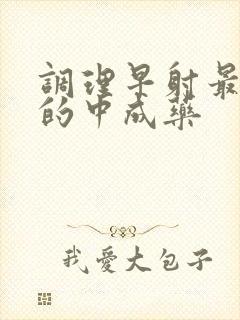 調理早射最
的中成藥
我愛大包子